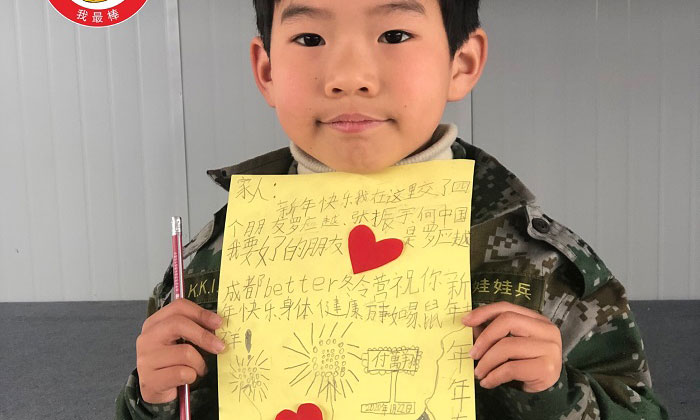 我最棒
家人：
新年快乐我在这里交了四
个朋友罗应越、张振宇何中国
我要好了的朋友 是罗应越
成都better冬令营祝你新
年快乐身体健康万事如意鼠年
祥
年
年
2020年1月22日
K.K.I
娃娃兵